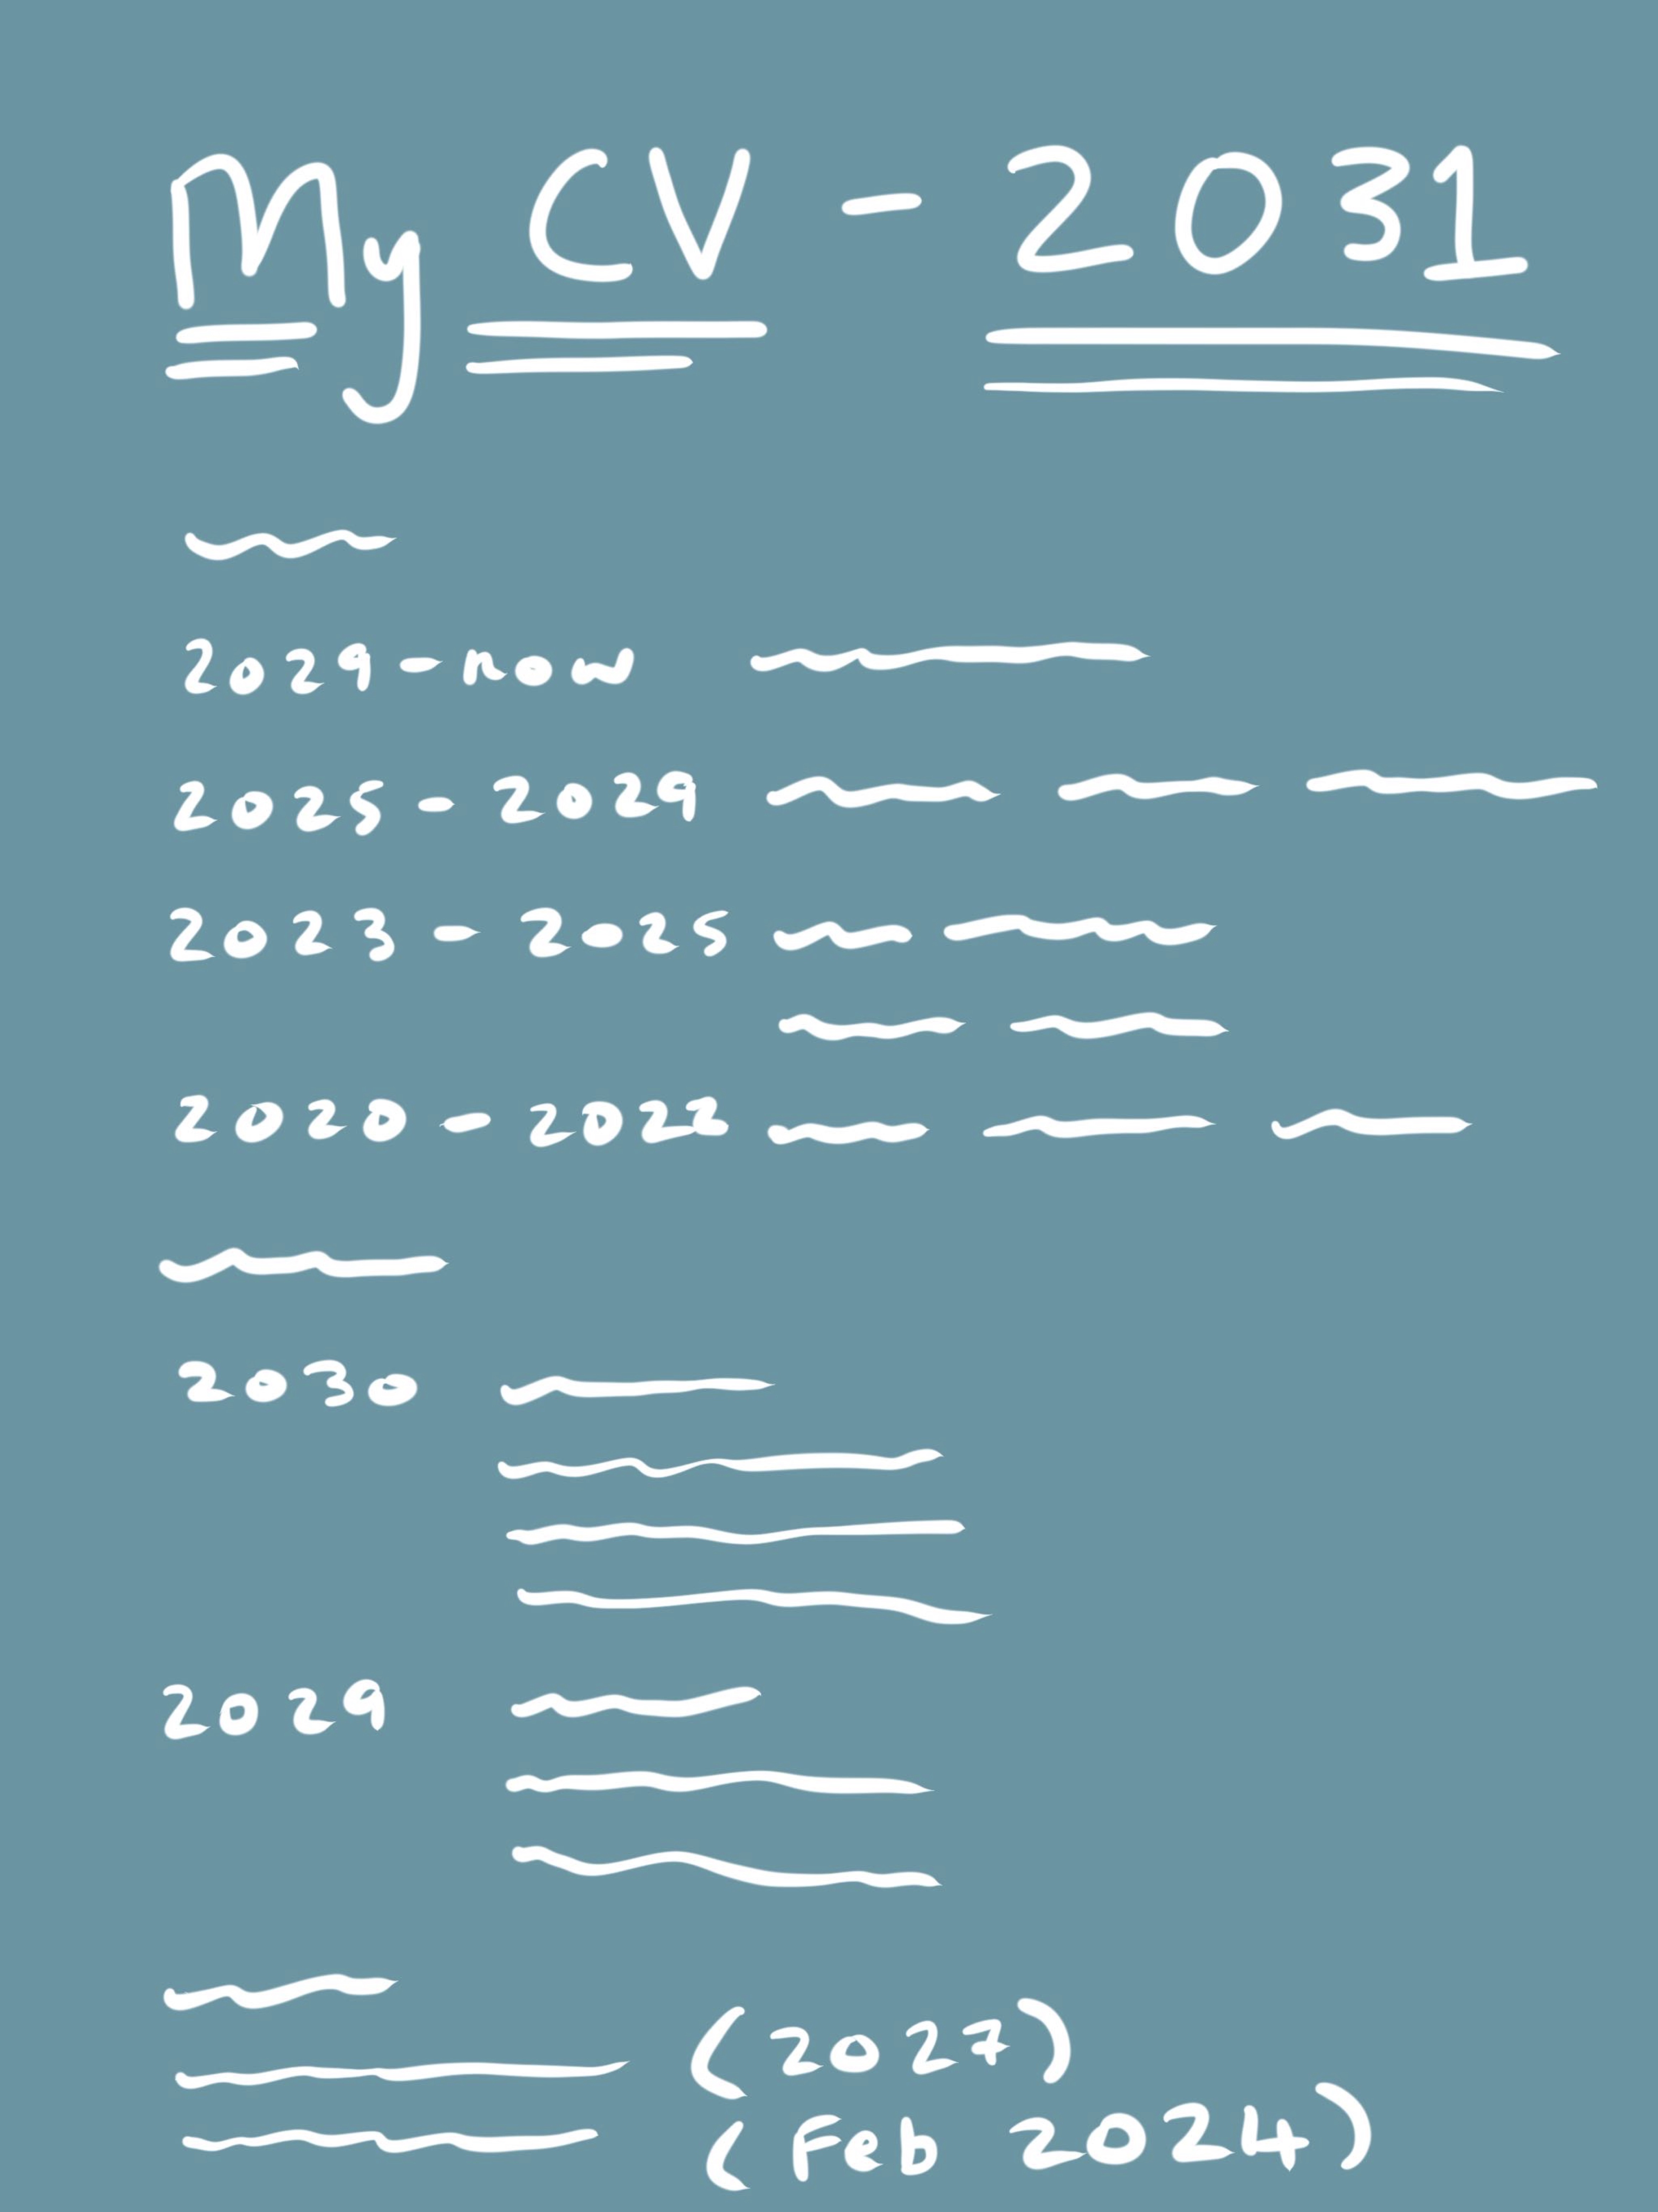 My CV - 2031
2029 - now
2025 - 2029
2023 - 2025
2020 - 2022
2030
2029
(2027)
(Feb 2024)